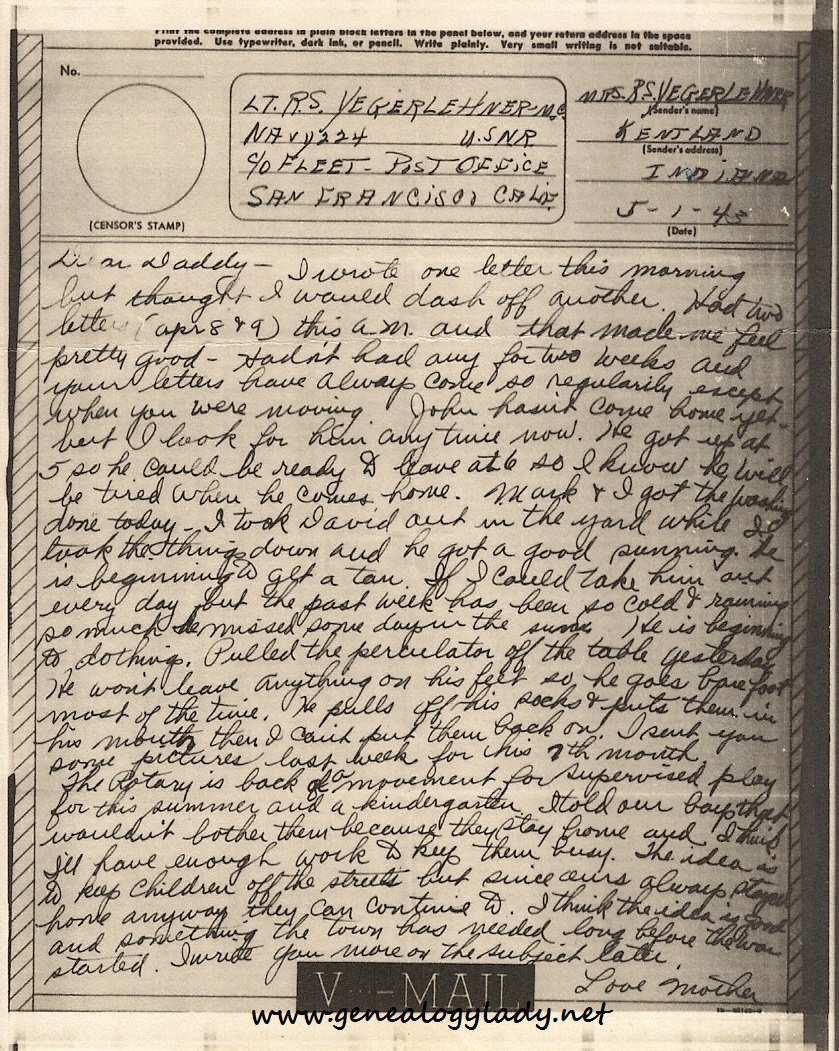 Print the complete address in plain block letters in the panel below, and your return address in the space
provided. Use typewriter, dark ink, or pencil. Write plainly. Very small writing is not suitable.
No.
(CENSOR'S STAMP)
LT. R.S. VEGERLEHNER-M.C.
NAVY 224 U.S.N.R.
C/O FLEET - POST OFFICE
SAN FRANCISCO, CALIF.
MRS. R.S. VEGERLEHNER
(Sender's name)
KENTLAND
(Sender's address)
INDIANA
5-1-43
(Date)
Dear Daddy - I wrote one letter this morning
but thought I would dash off another. Had two
letters (apr 8 & 9) this a.m. and that made me feel
pretty good - Hadn't had any for two weeks and
your letters have always come so regularily except
when you were moving. John hasn't come home yet -
but I look for him anytime now. He got up at
5 so he could be ready to leave at 6 so I know he will
be tired when he comes home. Mark & I got the washing
done today - I took David out in the yard while I
took the things down and he got a good sunning. He
is beginning to get a tan. If I could take him out
every day but the past week has been so cold & raining
so much he missed some days in the sun. He is beginning
to do things. Pulled the perculator off the table yesterday.
He won't leave anything on his feet so he goes barefoot
most of the time. He pulls off his socks & puts them in
his mouth then I can't put them back on. I sent you
some pictures last week for his 7th month.
The Rotary is back of a movement for supervised play
for this summer and a kindergarten. I told our boys that
wouldn't bother them because they stay home and I think
I'll have enough work to keep them busy. The idea is
to keep children off the streets but since ours always stayed
home anyway they can continue to. I think the idea is good
and something the town has needed long before the war
started. I write you more on the subject later.
Love Mother
V···—MAIL
www.genealogylady.net